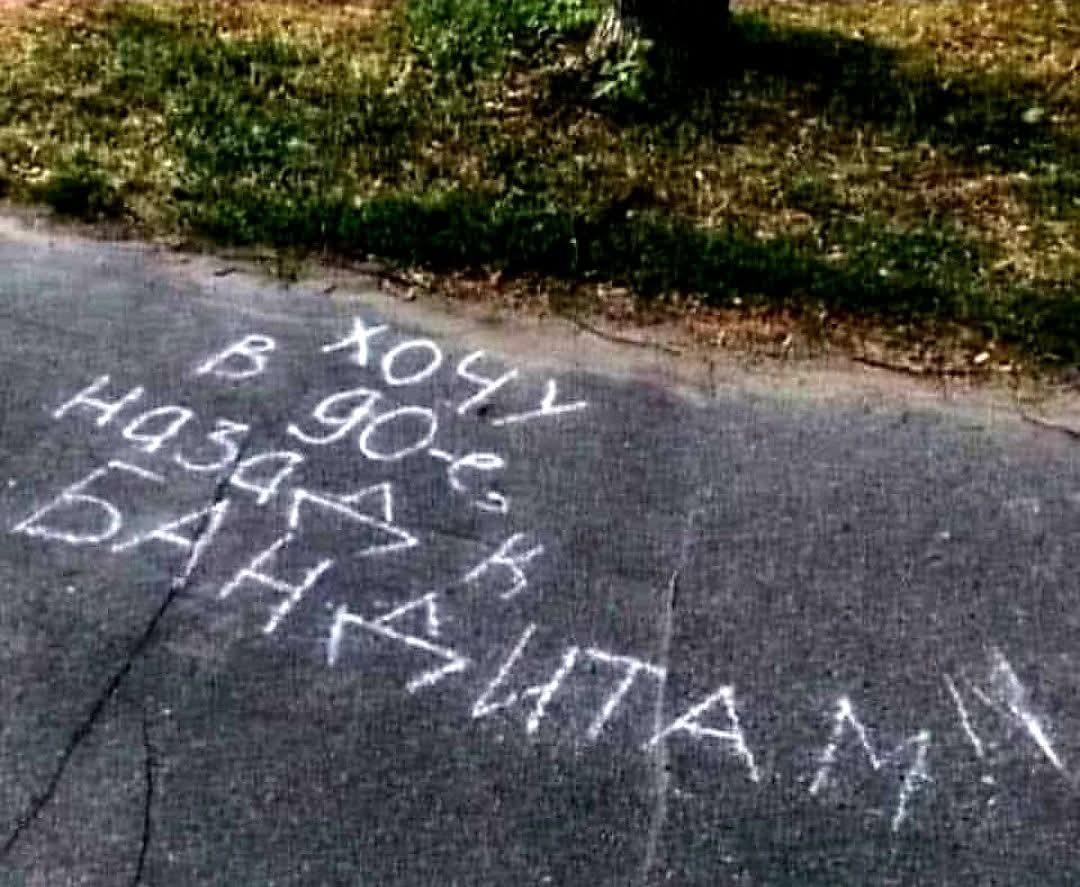 Хочу
в 90-е,
назад к
БАНДИТАМ!!